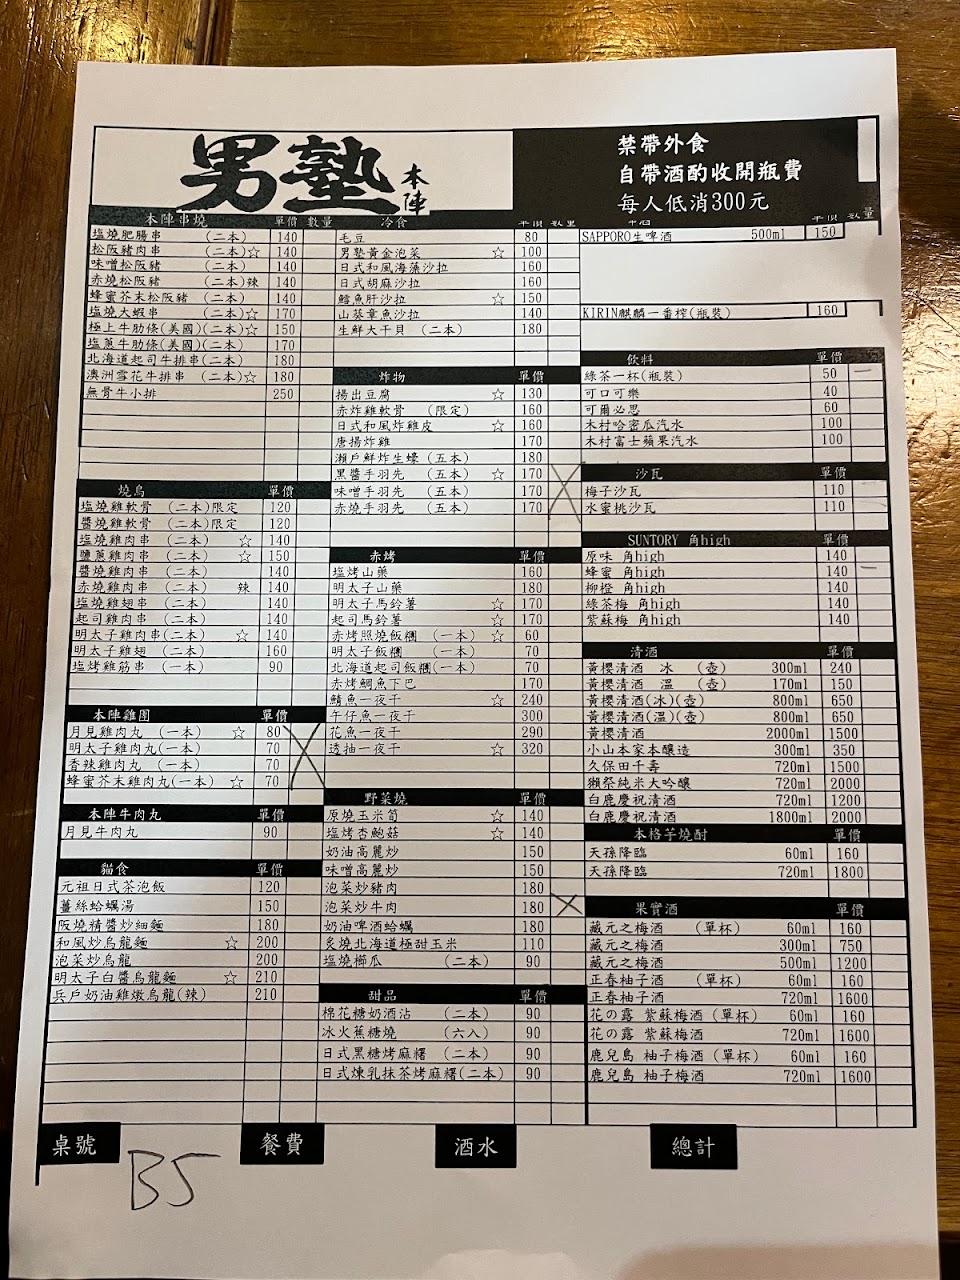 男塾 本陣
禁帶外食
自帶酒酌收開瓶費
每人低消300元
本陣串燒 單價 數量
塩燒肥腸串 (二本) 140
松阪豬肉串 (二本)☆ 140
味噌松阪豬 (二本) 140
赤燒松阪豬 (二本)辣 140
蜂蜜芥末松阪豬 (二本) 140
塩燒大蝦串 (二本)☆ 170
極上牛肋條(美國)(二本)☆ 150
塩蔥牛肋條(美國)(二本) 170
北海道起司牛排串(二本) 180
澳洲雪花牛排串 (二本)☆ 180
無骨牛小排 250
燒鳥 單價
塩燒雞軟骨 (二本)限定 120
醬燒雞軟骨 (二本)限定 120
塩燒雞肉串 (二本) ☆ 140
鹽蔥雞肉串 (二本) ☆ 150
醬燒雞肉串 (二本) 140
赤燒雞肉串 (二本) 辣 140
塩燒雞翅串 (二本) 140
起司雞肉串 (二本) 140
明太子雞肉串(二本) ☆ 140
明太子雞翅 (二本) 160
塩烤雞筋串 (一本) 90
本陣雞團 單價
月見雞肉丸 (一本) ☆ 80
明太子雞肉丸(一本) 70
香辣雞肉丸 (一本) 70
蜂蜜芥末雞肉丸(一本) ☆ 70
本陣牛肉丸 單價
月見牛肉丸 90
貓食 單價
元祖日式茶泡飯 120
薑絲蛤蠣湯 150
阪燒精醬炒細麵 180
和風炒烏龍麵 ☆ 200
泡菜炒烏龍 200
明太子白醬烏龍麵 ☆ 210
兵戶奶油雞燉烏龍(辣) 210
冷食 單價 數量
毛豆 80
男塾黃金泡菜 ☆ 100
日式和風海藻沙拉 160
日式胡麻沙拉 160
鱈魚肝沙拉 ☆ 150
山葵章魚沙拉 140
生鮮大干貝 (二本) 180
炸物 單價
揚出豆腐 ☆ 130
赤炸雞軟骨 (限定) 160
日式和風炸雞皮 ☆ 160
唐揚炸雞 170
瀨戶鮮炸生蠔 (五本) 180
黑醬手羽先 (五本) ☆ 170
味噌手羽先 (五本) 170
赤燒手羽先 (五本) 170
赤烤 單價
塩烤山藥 160
明太子山藥 180
明太子馬鈴薯 ☆ 170
起司馬鈴薯 ☆ 170
赤烤照燒飯糰 (一本) ☆ 60
明太子飯糰 (一本) 70
北海道起司飯糰(一本) 70
赤烤鯛魚下巴 170
鯖魚一夜干 ☆ 240
午仔魚一夜干 300
花魚一夜干 290
透抽一夜干 ☆ 320
野菜燒 單價
原燒玉米筍 ☆ 140
塩烤杏鮑菇 ☆ 140
奶油高麗炒 150
味噌高麗炒 150
泡菜炒豬肉 180
泡菜炒牛肉 180
奶油啤酒蛤蠣 180
炙燒北海道極甜玉米 110
塩燒櫛瓜 (二本) 90
甜品 單價
棉花糖奶酒沾 (二本) 90
冰火蕉糖燒 (六入) 90
日式黑糖烤麻糬 (二本) 90
日式煉乳抹茶烤麻糬(二本) 90
單價 數量
SAPPORO生啤酒 500ml 150
KIRIN麒麟一番榨(瓶裝) 160
飲料 單價
綠茶一杯(瓶裝) 50 一
可口可樂 40
可爾必思 60
木村哈密瓜汽水 100
木村富士蘋果汽水 100
沙瓦 單價
梅子沙瓦 110
水蜜桃沙瓦 110
SUNTORY 角high 單價
原味 角high 140
蜂蜜 角high 140 一
柳橙 角high 140
綠茶梅 角high 140
紫蘇梅 角high 140
清酒 單價
黃櫻清酒 冰 (壺) 300ml 240
黃櫻清酒 溫 (壺) 170ml 150
黃櫻清酒(冰)(壺) 800ml 650
黃櫻清酒(溫)(壺) 800ml 650
黃櫻清酒 2000ml 1500
小山本家本釀造 300ml 350
久保田千壽 720ml 1500
獺祭純米大吟釀 720ml 2000
白鹿慶祝清酒 720ml 1200
白鹿慶祝清酒 1800ml 2000
本格芋燒酎 單價
天孫降臨 60ml 160
天孫降臨 720ml 1800
果實酒 單價
藏元之梅酒 (單杯) 60ml 160
藏元之梅酒 300ml 750
藏元之梅酒 500ml 1200
正春柚子酒 (單杯) 60ml 160
正春柚子酒 720ml 1600
花の露 紫蘇梅酒(單杯) 60ml 160
花の露 紫蘇梅酒 720ml 1600
鹿兒島 柚子梅酒(單杯) 60ml 160
鹿兒島 柚子梅酒 720ml 1600
桌號 B5 餐費 酒水 總計